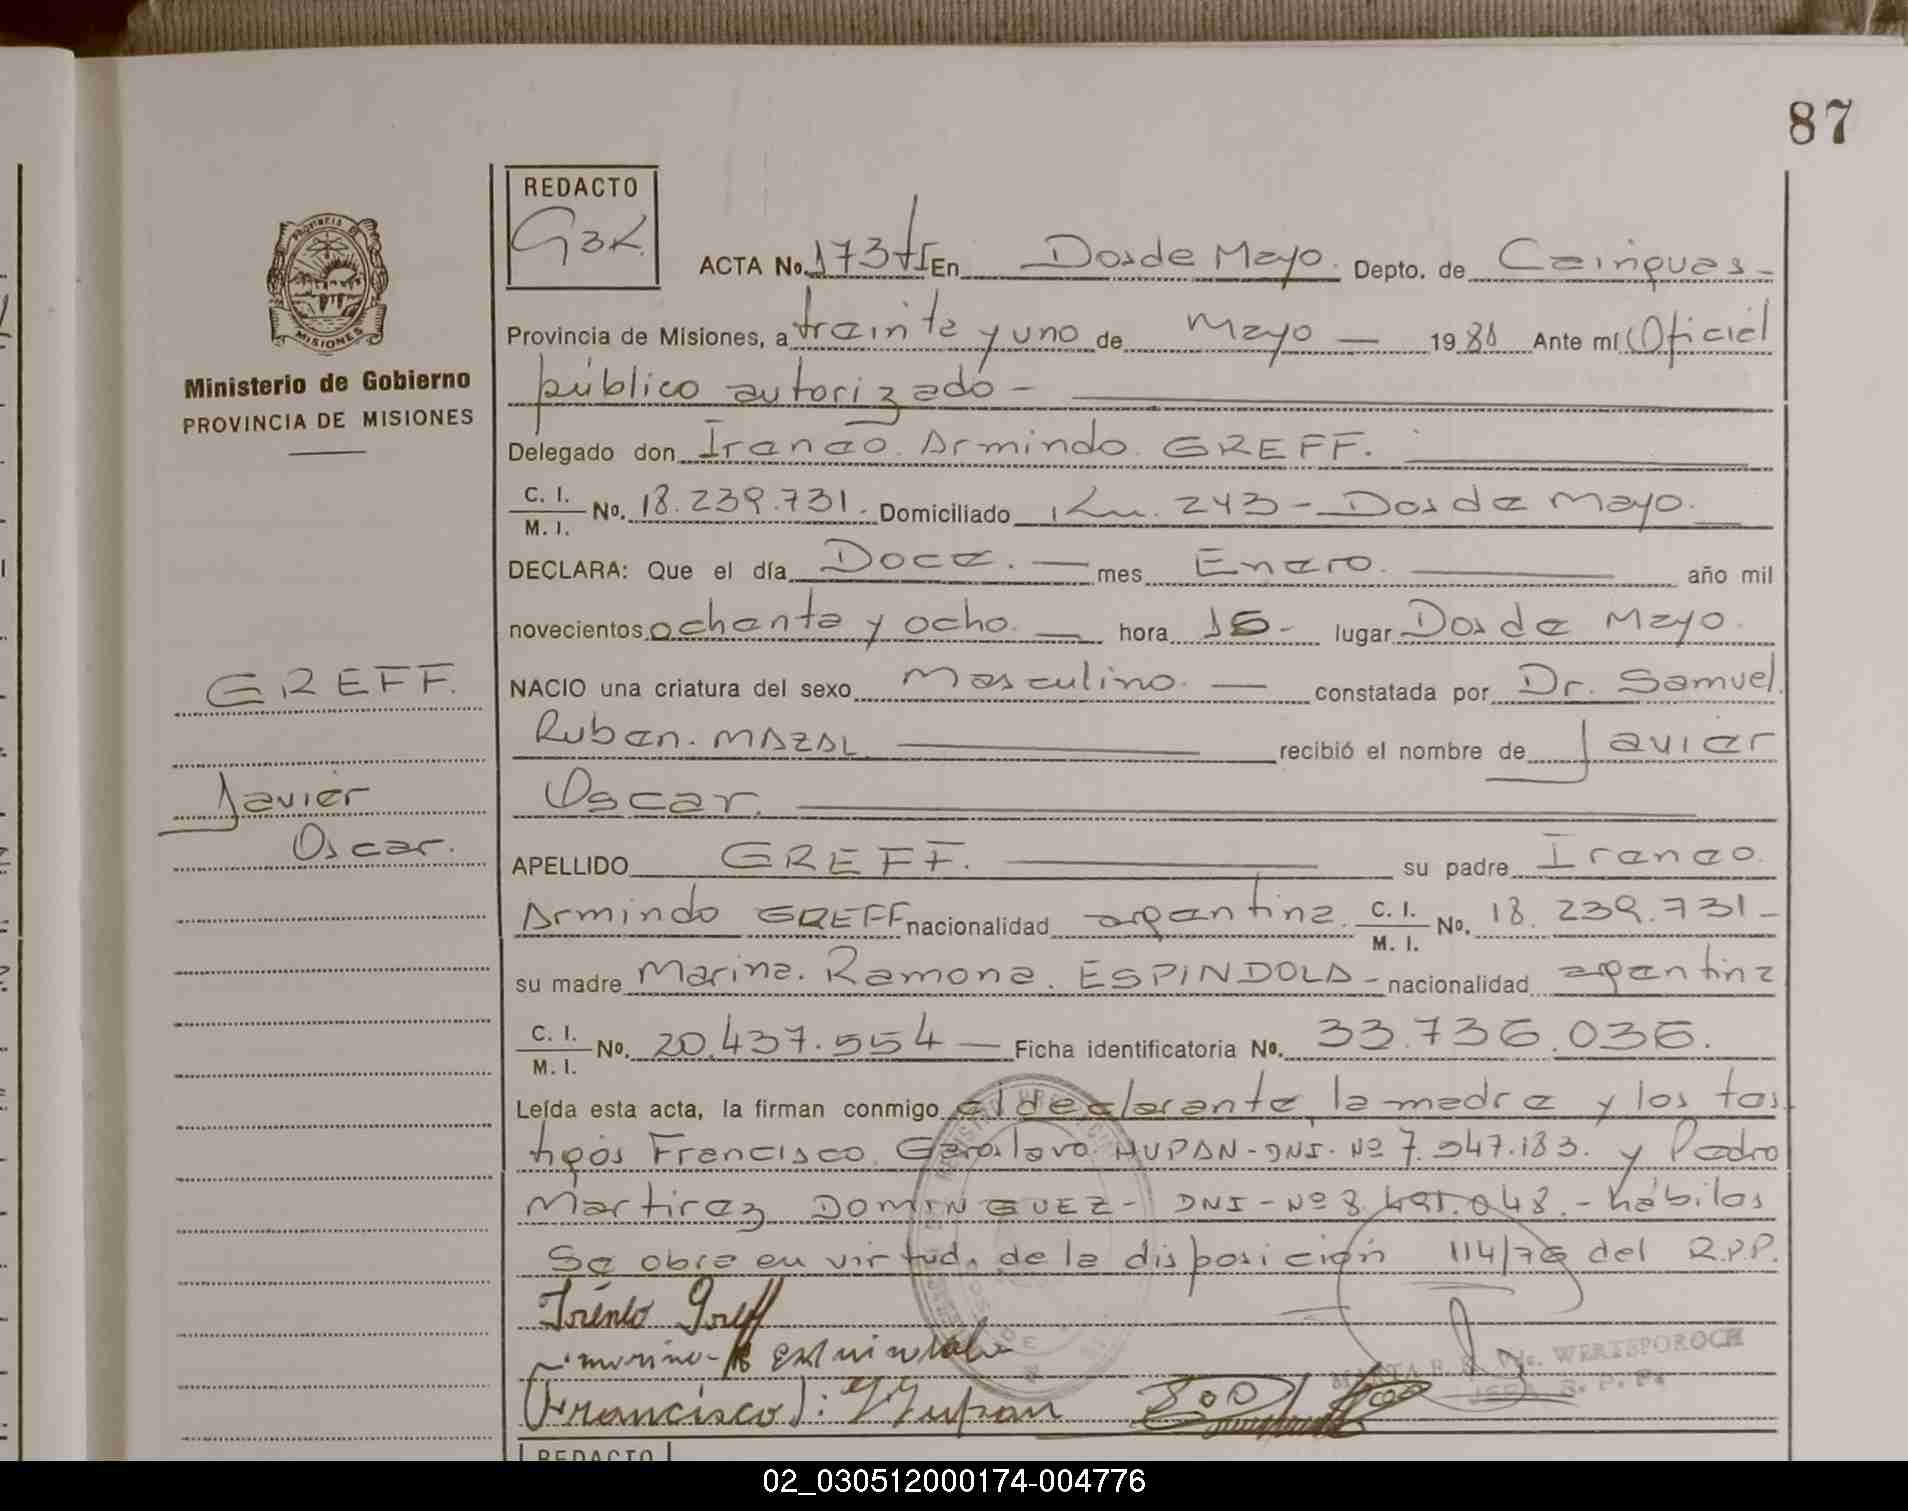 87
REDACTO
G3K.
ACTA No. 173 tI En Dos de Mayo. Depto. de Cainguas -
Provincia de Misiones, a treinta y uno de Mayo — 1988 Ante mí Oficial
público autorizado -
Delegado don Ireneo Armindo GREFF.
C. I.
M. I. No. 18.239.731. Domiciliado Km. 243 - Dos de Mayo.
DECLARA: Que el día Doce. — mes Enero. año mil
novecientos ochenta y ocho. — hora 15 - lugar Dos de Mayo.
NACIO una criatura del sexo Masculino. — constatada por Dr. Samuel
Ruben. MAZAL recibió el nombre de Javier
Oscar.
APELLIDO GREFF. su padre Ireneo
Armindo GREFF nacionalidad argentina. C. I.
M. I. No. 18.239.731 -
su madre Marina. Ramona. ESPINDOLA - nacionalidad argentina
C. I.
M. I. No. 20.437.554 — Ficha identificatoria No. 33.736.036.
Leída esta acta, la firman conmigo el declarante, la madre y los tes
tigos Francisco Geroslavo HUPAN - DNI. Nº 7.547.183. y Pedro
Martirez DOMINGUEZ - DNI - Nº 8.491.048. - hábiles
Se obra en virtud, de la disposición 114/76 del R.P.P.
Iréneo Greff
Francisco J: Hupan
WERESPOROCH
Ministerio de Gobierno
PROVINCIA DE MISIONES
PROVINCIA DE
MISIONES
GREFF.
Javier
Oscar.
REDACTO
02_030512000174-004776